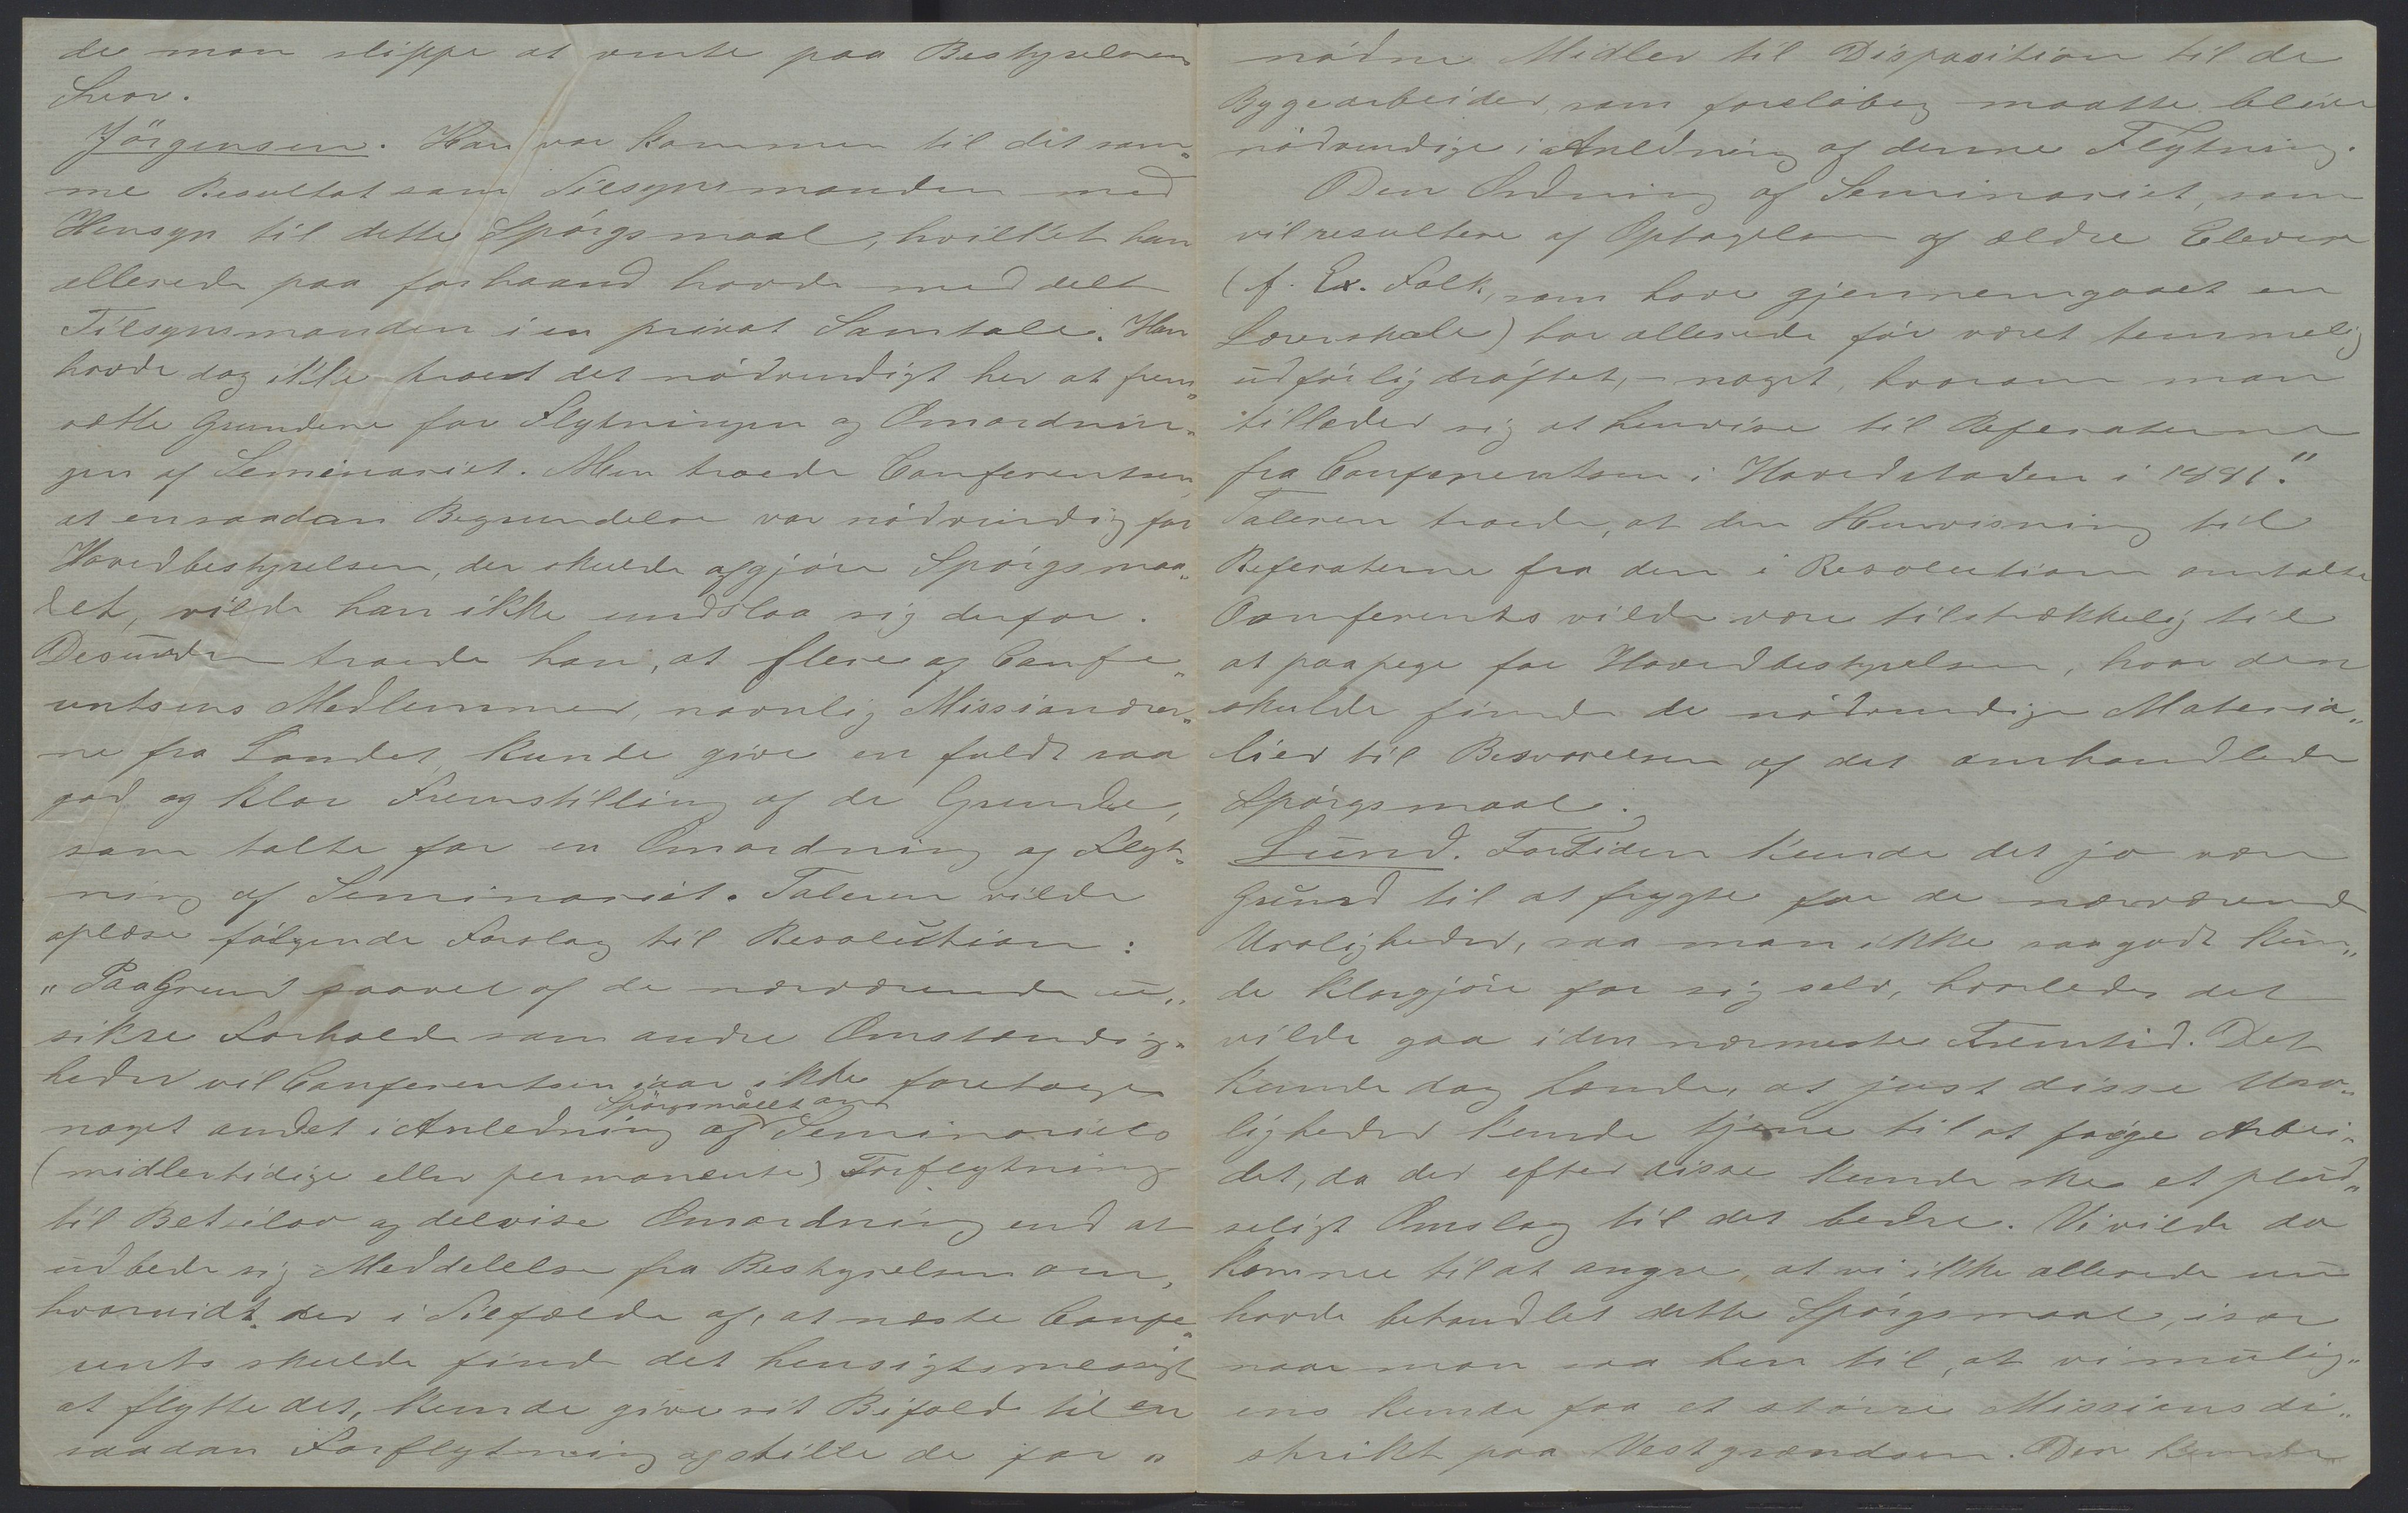 de man slippe at vente paa Bestyrelsens
Svar.
Jörgensen. Han var kommen til det sam„
me Resultat som Tilsynsmanden med
Hensyn til dette Spörgsmaal, hvilket han
allerede paa forhaand havde meddelt
Tilsynsmanden i en privat Samtale. Han
havde dog ikke troet det nödvendigt her at frem„
sætte Grundene for Flytningen og Omordnin„
gen af Seminariet. Men troede Conferentsen,
at en saadan Begrundelse var nödvendig for
Hovedbestyrelsen, der skulde afgjöre Spörgsmaa„
let, vilde han ikke undslaa sig derfor.
Desuden troede han, at flere af Confe„
rentsens Medlemmer, navnlig Missionærer„
ne fra Landet, kunde give en fuldt saa
god og klar Fremstilling af de Grunde,
som talte for en Omordning og Flyt„
ning af Seminariet. Taleren vilde
oplæse fölgende Forslag til Resolution:
„Paa Grund saavel af de nærværende u„
sikre Forholde som andre Omstændig„
heder vil Conferentsen iaar ikke foretage
noget andet i Anledning af Spörgsmålet om Seminariets
(midlertidige eller permanente) Forflytning
til Betsilao og delvise Omordning end at
udbede sig Meddelelse fra Bestyrelsen om,
hvorvidt den i Tilfælde af, at næste Confe„
rents skulde finde det hensigtsmæssigt
at flytte det, kunde give sit Bifald til en
saadan Forflytning og stille de for „
nödne Midler til Disposition til de
Bygearbeider, som forelöbig maatte blive
nödvendige i Anledning af denne Flytning.
Den Ordning af Seminariet, som
vil resultere af Optagelsen af ældre Elever
(f. Ex. Folk, som have gjennemgaaet en
Lærerskole) har allerede för været temmelig
udförlig dröftet, – noget, hvorom man
tillader sig at henvise til Referaterne
fra Conferentsen i Hovedstaden i 1881."
Taleren troede, at den Henvisning til
Referaterne fra den i Resolutionen omtalte
Conferents vilde være tilstrækkelig til
at paapege for Hovedbestyrelsen, hvor den
skulde finde de nödvendige Materia„
lier til Besvarelsen af det omhandlede
Spörgsmaal.
Lund. For Tiden kunde det jo være
Grund til at frygte for de nærværende
Uroligheder, saa man ikke saa godt kun„
de klargjöre for sig selv, hvorledes det
vilde gaa i den nærmeste Fremtid. Det
kunde dog hænde, at just disse Uro„
ligheder kunde tjene til at forøge Arbei„
det, da der efter disse kunde ske et plud„
seligt Omslag til det bedre. Vi vilde da
komme til at angre, at vi ikke allerede nu
havde behandlet dette Spörgsmaal, især
naar man saa hen til, at vi mulig„
ens kunde faa et större Missionsdi„
strikt paa Vestgrændsen. Den kunde